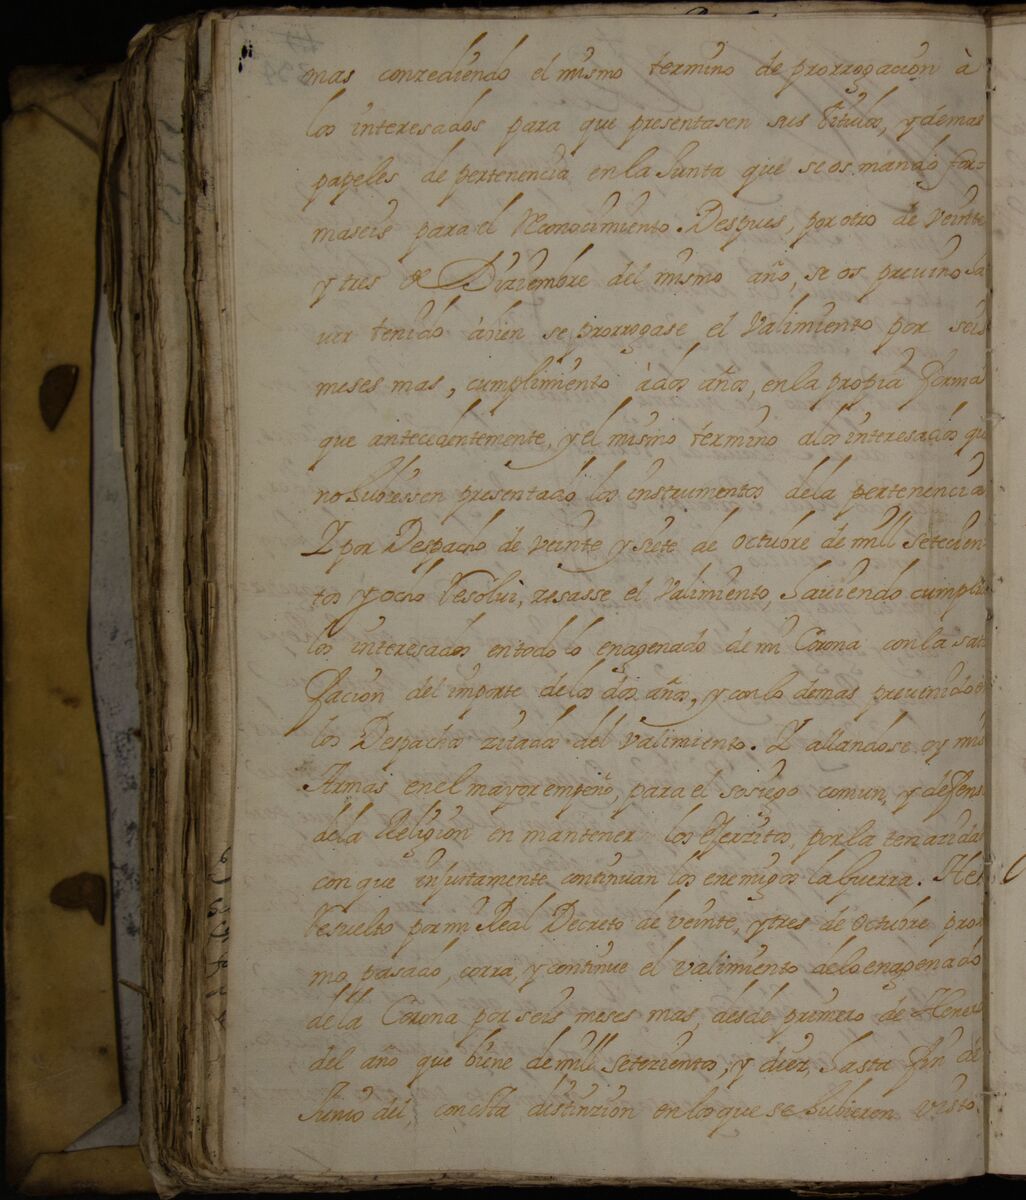 mas conzediendo el mismo termino de prorrogacion à
los interesados para que presentasen sus titulos, y demas
papeles de pertenencia en la Junta que se os mandó for=
maseis para el Reconocimiento. Despues, por otro de veinte
y tres de Diziembre del mismo año, se os previno ha
ver tenido à bien se prorrogase el Valimiento por seis
meses mas, cumplimiento à dos años, en la propia forma
que antecedentemente, y el mismo termino a los interesados qe
no hubiessen presentado los instrumentos de la pertenencia
Y por Despacho de veinte y siete de octubre de mill setecien
tos y ocho Resolvi, zesasse el Valimiento, haviendo cumplido
los interesados en todo lo enagenado de mi Corona con la satis
facion del importe de los dos años, y con lo demas prevenido en
los Despachos zitados del Valimiento. Y allandose oy mis
Armas en el mayor empeño, para el sosiego comun, y defensa
de la Religion en mantener los Exerzitos, por la temazidad
con que injustamente continuan los enemigos la Guerra. He
Resuelto por mi Real Decreto de veinte, y tres de octubre pro
mo pasado, corra, y continue el valimiento de lo enagenado
de la Corona por seis meses mas, desde primero de Henero
del año que biene de mill setezientos, y diez, hasta fin de
Junio del, con esta distinzion en los que se hubieren visto